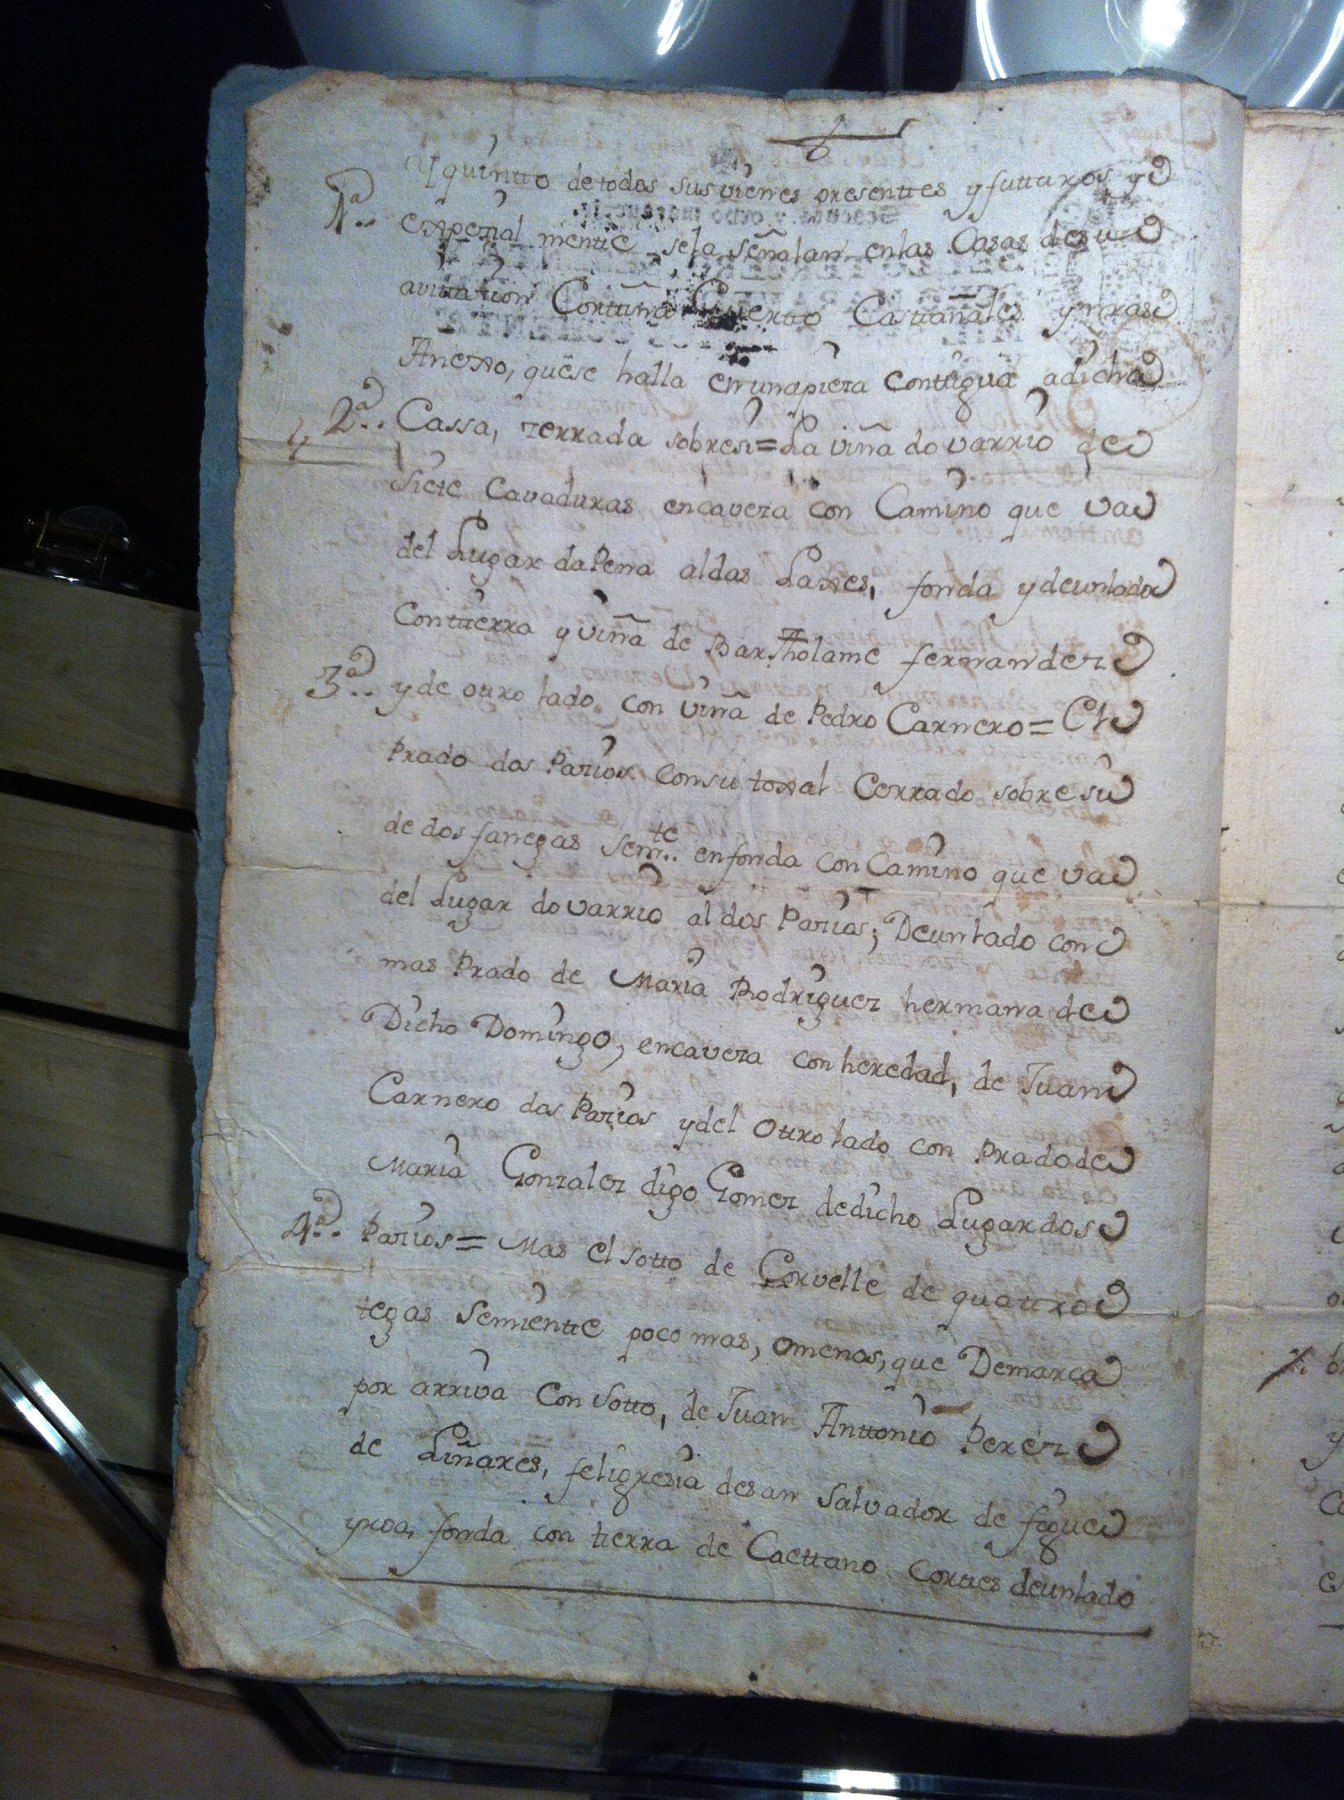 Y quintto de todos sus vienes presenttes y futturos y
1ª.. especial mentte se la señalan en las Casas de su
avitación Cortiña Guertto Castañales y mas
Anexo, que se halla en una pieza conttigua a dicha
2ª.. Cassa, zerrada sobre si = La viña do varrio de
siete cavaduras encaveza con Camino que va
del Lugar da Pena al das Laxes, fonda y de un lado
con tierra y viña de Bartholame fernandez
3ª.. y de otro lado con viña de Pedro Carnero = El
Prado dos Pazios con su toxal Cerrado sobre si
de dos fanegas sem.te en fonda con Camino que va
del Lugar do varrio al dos Pazios; De un lado con
mas Prado de Maria Rodriguez hermana de
Dicho Domingo, encaveza con heredad, de Juan
Carnero dos Pazios y del Otro lado con Prado de
Maria Gonzalez digo Gomez de dicho Lugar dos
4ª.. Pazios = Mas el sotto de Corvelle de quattro
tegas semientte poco mas, o menos, que Demarca
por arriva Con Sotto, de Juan Anttonio Perez
de Liñares, feligresia de san Salvador de figue
yroa, fonda con tierra de Caettano Corttes de un lado